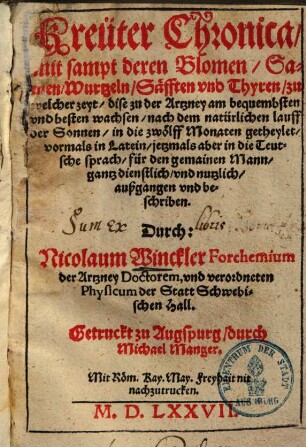 Kreüter Chronica/
mit sampt deren Blomen/ Sa-
men/ Wurtzeln/ Säfften vnd Thyren/ zu
welcher zeyt/ dise zu der Artzney am bequembsten
vnd besten wachsen/ nach dem natürlichen lauff
der Sonnen/ in die zwölff Monaten getheylet/
vormals in Latein/ jetzmals aber in die Teut-
sche sprach/ für den gemainen Mann/
gantz dienstlich/ vnd nutzlich/
außgangen vnd be-
schriben.
Sum Ex libris
Durch:
Nicolaum Winckler Forchemium
der Artzney Doctorem, vnd verordneten
Physicum der Statt Schwebi-
schen Hall.
Getruckt zu Augspurg/ durch
Michael Manger.
Mit Röm. Kay. May. Freyhait nit
nachzutrucken.
M. D. LXXVII.
AUGSBURG